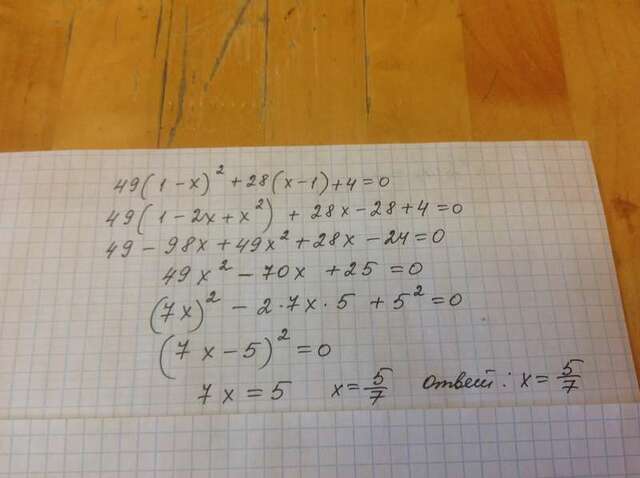 49(1-x)² + 28(x-1)+4=0
49(1-2x+x²) + 28x-28+4=0
49-98x+49x²+28x-24=0
49x²-70x+25=0
(7x)²-2·7x·5+5²=0
(7x-5)²=0
7x=5 x=5/7 ответ: x=5/7